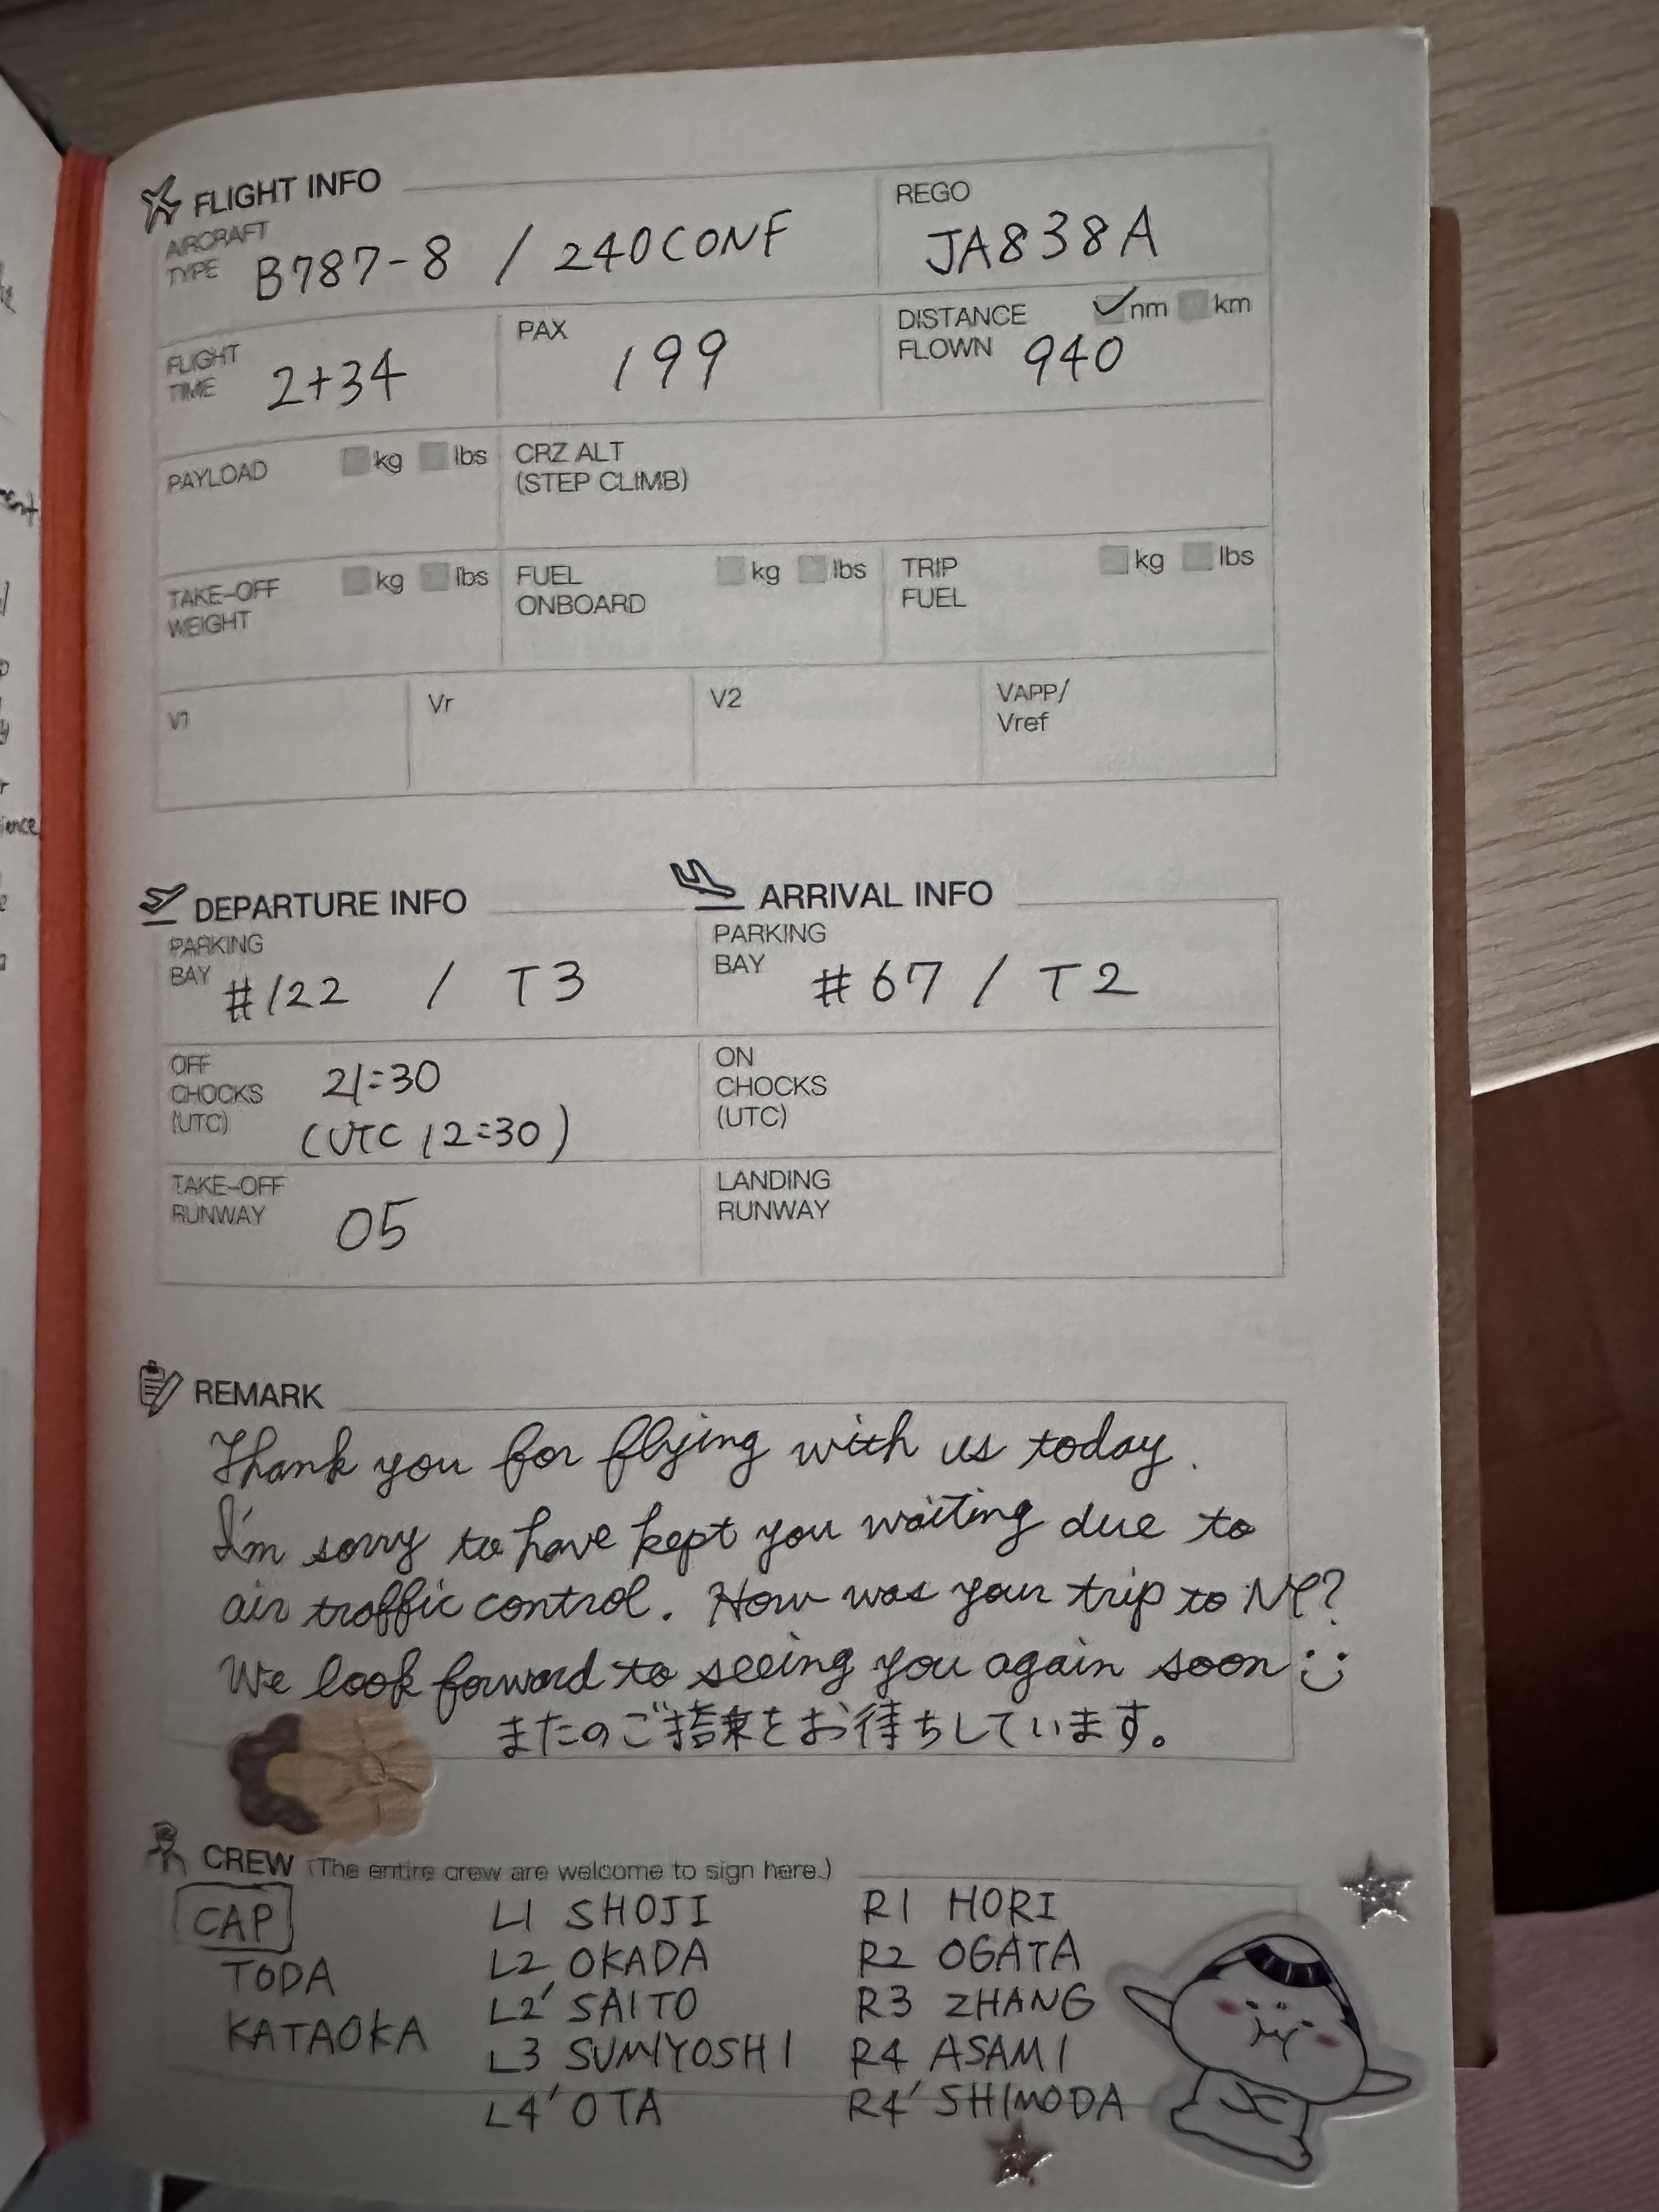 FLIGHT INFO
AIRCRAFT TYPE B787-8 / 240CONF
REGO JA838A
FLIGHT TIME 2+34
PAX 199
DISTANCE FLOWN ✓nm km 940
PAYLOAD kg lbs
CRZ ALT (STEP CLIMB)
TAKE-OFF WEIGHT kg lbs
FUEL ONBOARD kg lbs
TRIP FUEL kg lbs
V1
Vr
V2
VAPP/ Vref
DEPARTURE INFO
ARRIVAL INFO
PARKING BAY #122 / T3
PARKING BAY #67 / T2
OFF CHOCKS (UTC) 21:30 (UTC 12:30)
ON CHOCKS (UTC)
TAKE-OFF RUNWAY 05
LANDING RUNWAY
REMARK
Thank you for flying with us today.
I'm sorry to have kept you waiting due to
air traffic control. How was your trip to
We look forward to seeing you again soon :)
またのご搭乗をお待ちしています。
CREW (The entire crew are welcome to sign here.)
CAP
TODA
KATAOKA
L1 SHOJI
L2 OKADA
L2' SAITO
L3 SUMIYOSHI
L4' OTA
R1 HORI
R2 OGATA
R3 ZHANG
R4 ASAMI
R4' SHIMODA